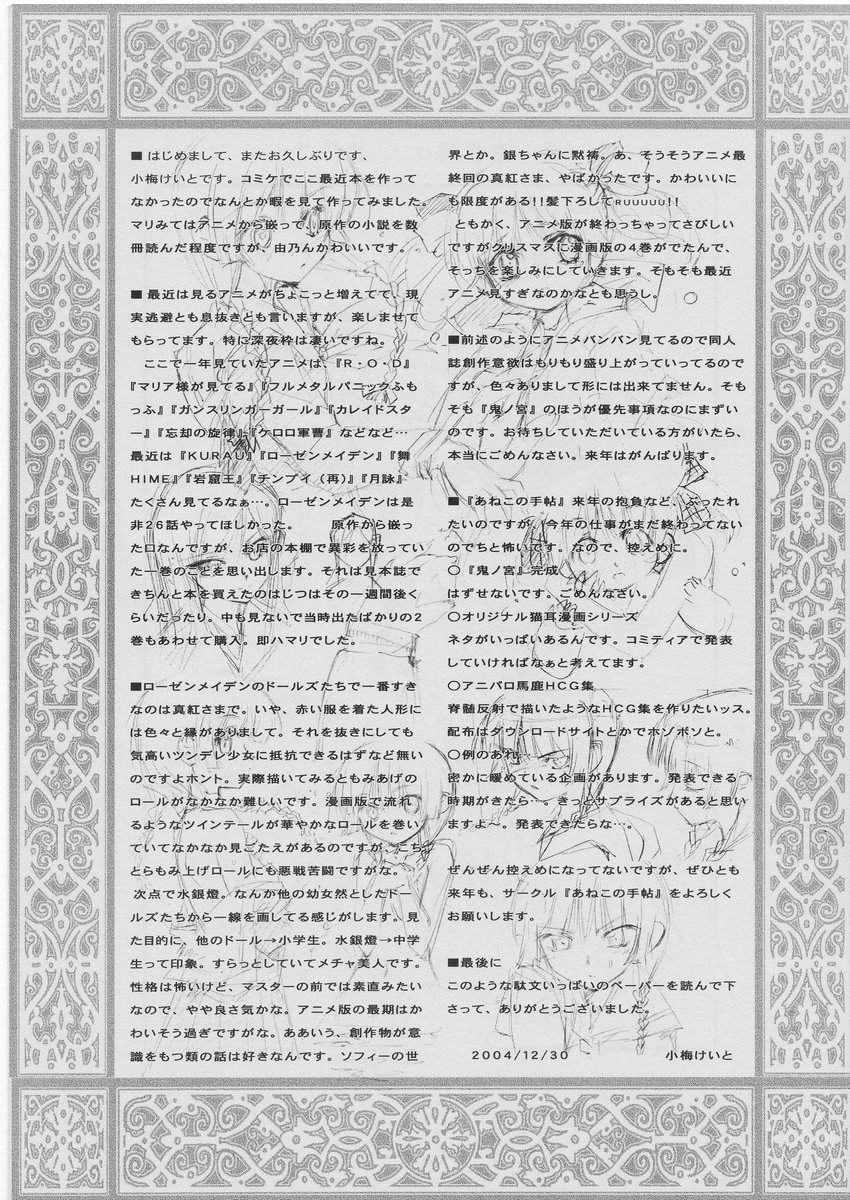 ■ はじめまして、またお久しぶりです、
小梅けいとです。コミケでここ最近本を作って
なかったのでなんとか暇を見て作ってみました。
マリみてはアニメから嵌って、原作の小説を数
冊読んだ程度ですが、由乃んかわいいです。
■ 最近は見るアニメがちょこっと増えてて、現
実逃避とも息抜きとも言いますが、楽しませて
もらってます。特に深夜枠は凄いですね。
ここで一年見ていたアニメは、『R・O・D』
『マリア様が見てる』『フルメタルパニックふも
っふ』『ガンスリンガーガール』『カレイドスタ
ー』『忘却の旋律』『ケロロ軍曹』などなど…
最近は『KURAU』『ローゼンメイデン』『舞
HIME』『岩窟王』『チンプイ（再）』『月詠』
たくさん見てるなぁ…。ローゼンメイデンは是
非26話やってほしかった。　　原作から嵌っ
た口なんですが、お店の本棚で異彩を放ってい
た一巻のことを思い出します。それは見本誌で
きちんと本を買えたのはじつはその一週間後く
らいだったり。中も見ないで当時出たばかりの2
巻もあわせて購入。即ハマリでした。
■ローゼンメイデンのドールズたちで一番すき
なのは真紅さまで。いや、赤い服を着た人形に
は色々と縁がありまして。それを抜きにしても
気高いツンデレ少女に抵抗できるはずなど無い
のですよホント。実際描いてみるともみあげの
ロールがなかなか難しいです。漫画版で流れ
るようなツインテールが華やかなロールを巻い
ていてなかなか見ごたえがあるのですが、こち
とらもみ上げロールにも悪戦苦闘ですがな。
次点で水銀燈。なんか他の幼女然としたドー
ルズたちから一線を画してる感じがします。見
た目的に、他のドール→小学生。水銀燈→中学
生って印象。すらっとしていてメチャ美人です。
性格は怖いけど、マスターの前では素直みたい
なので、やや良さ気かな。アニメ版の最期はか
わいそう過ぎですがな。ああいう、創作物が意
識をもつ類の話は好きなんです。ソフィーの世
界とか。銀ちゃんに黙祷。あ、そうそうアニメ最
終回の真紅さま、やばかったです。かわいいに
も限度がある!!髪下ろしてRUUUUU!!
ともかく、アニメ版が終わっちゃってさびしい
ですがクリスマスに漫画版の4巻がでたんで、
そっちを楽しみにしていきます。そもそも最近
アニメ見すぎなのかなとも思うし。
■前述のようにアニメバンバン見てるので同人
誌創作意欲はもりもり盛り上がっていってるので
すが、色々ありまして形には出来てません。そも
そも『鬼ノ宮』のほうが優先事項なのにまずい
のです。お待ちしていただいている方がいたら、
本当にごめんなさい。来年はがんばります。
■『あねこの手帖』来年の抱負など、ぶったれ
たいのですが、今年の仕事がまだ終わってない
のでちと怖いです。なので、控えめに。
○『鬼ノ宮』完成
はずせないです。ごめんなさい。
○オリジナル猫耳漫画シリーズ
ネタがいっぱいあるんです。コミティアで発表
していければなぁと考えてます。
○アニパロ馬鹿HCG集
脊髄反射で描いたようなHCG集を作りたいッス。
配布はダウンロードサイトとかでホソボソと。
○例のあれ…
密かに暖めている企画があります。発表できる
時期がきたら…。きっとサプライズがあると思い
ますよ～。発表できたらな…。
ぜんぜん控えめになってないですが、ぜひとも
来年も、サークル『あねこの手帖』をよろしく
お願いします。
■最後に
このような駄文いっぱいのペーパーを読んで下
さって、ありがとうございました。
2004/12/30　　小梅けいと